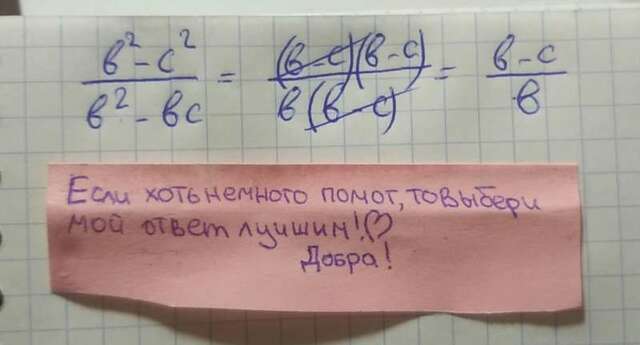 в² - с² / в² - вс = (в - с)(в - с) / в(в - с) = в - с / в
Если хоть немного помог, то выбери
мой ответ лучшим!♡
Добра!